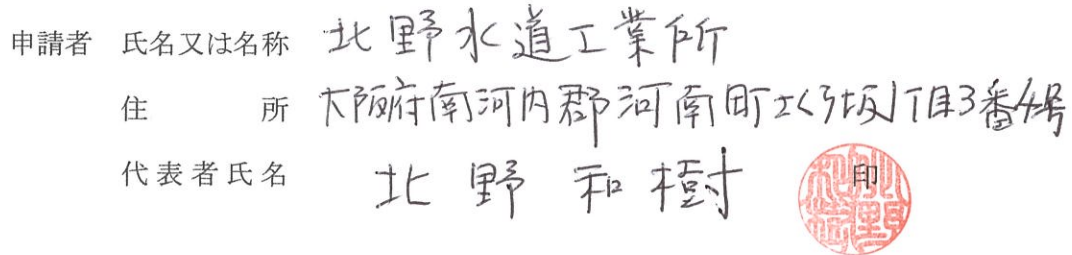 申請者 氏名又は名称 北野水道工業所
住 所 大阪府南河内郡河南町さくら坂1丁目3番4号
代表者氏名 北野 和樹 印
北野和樹